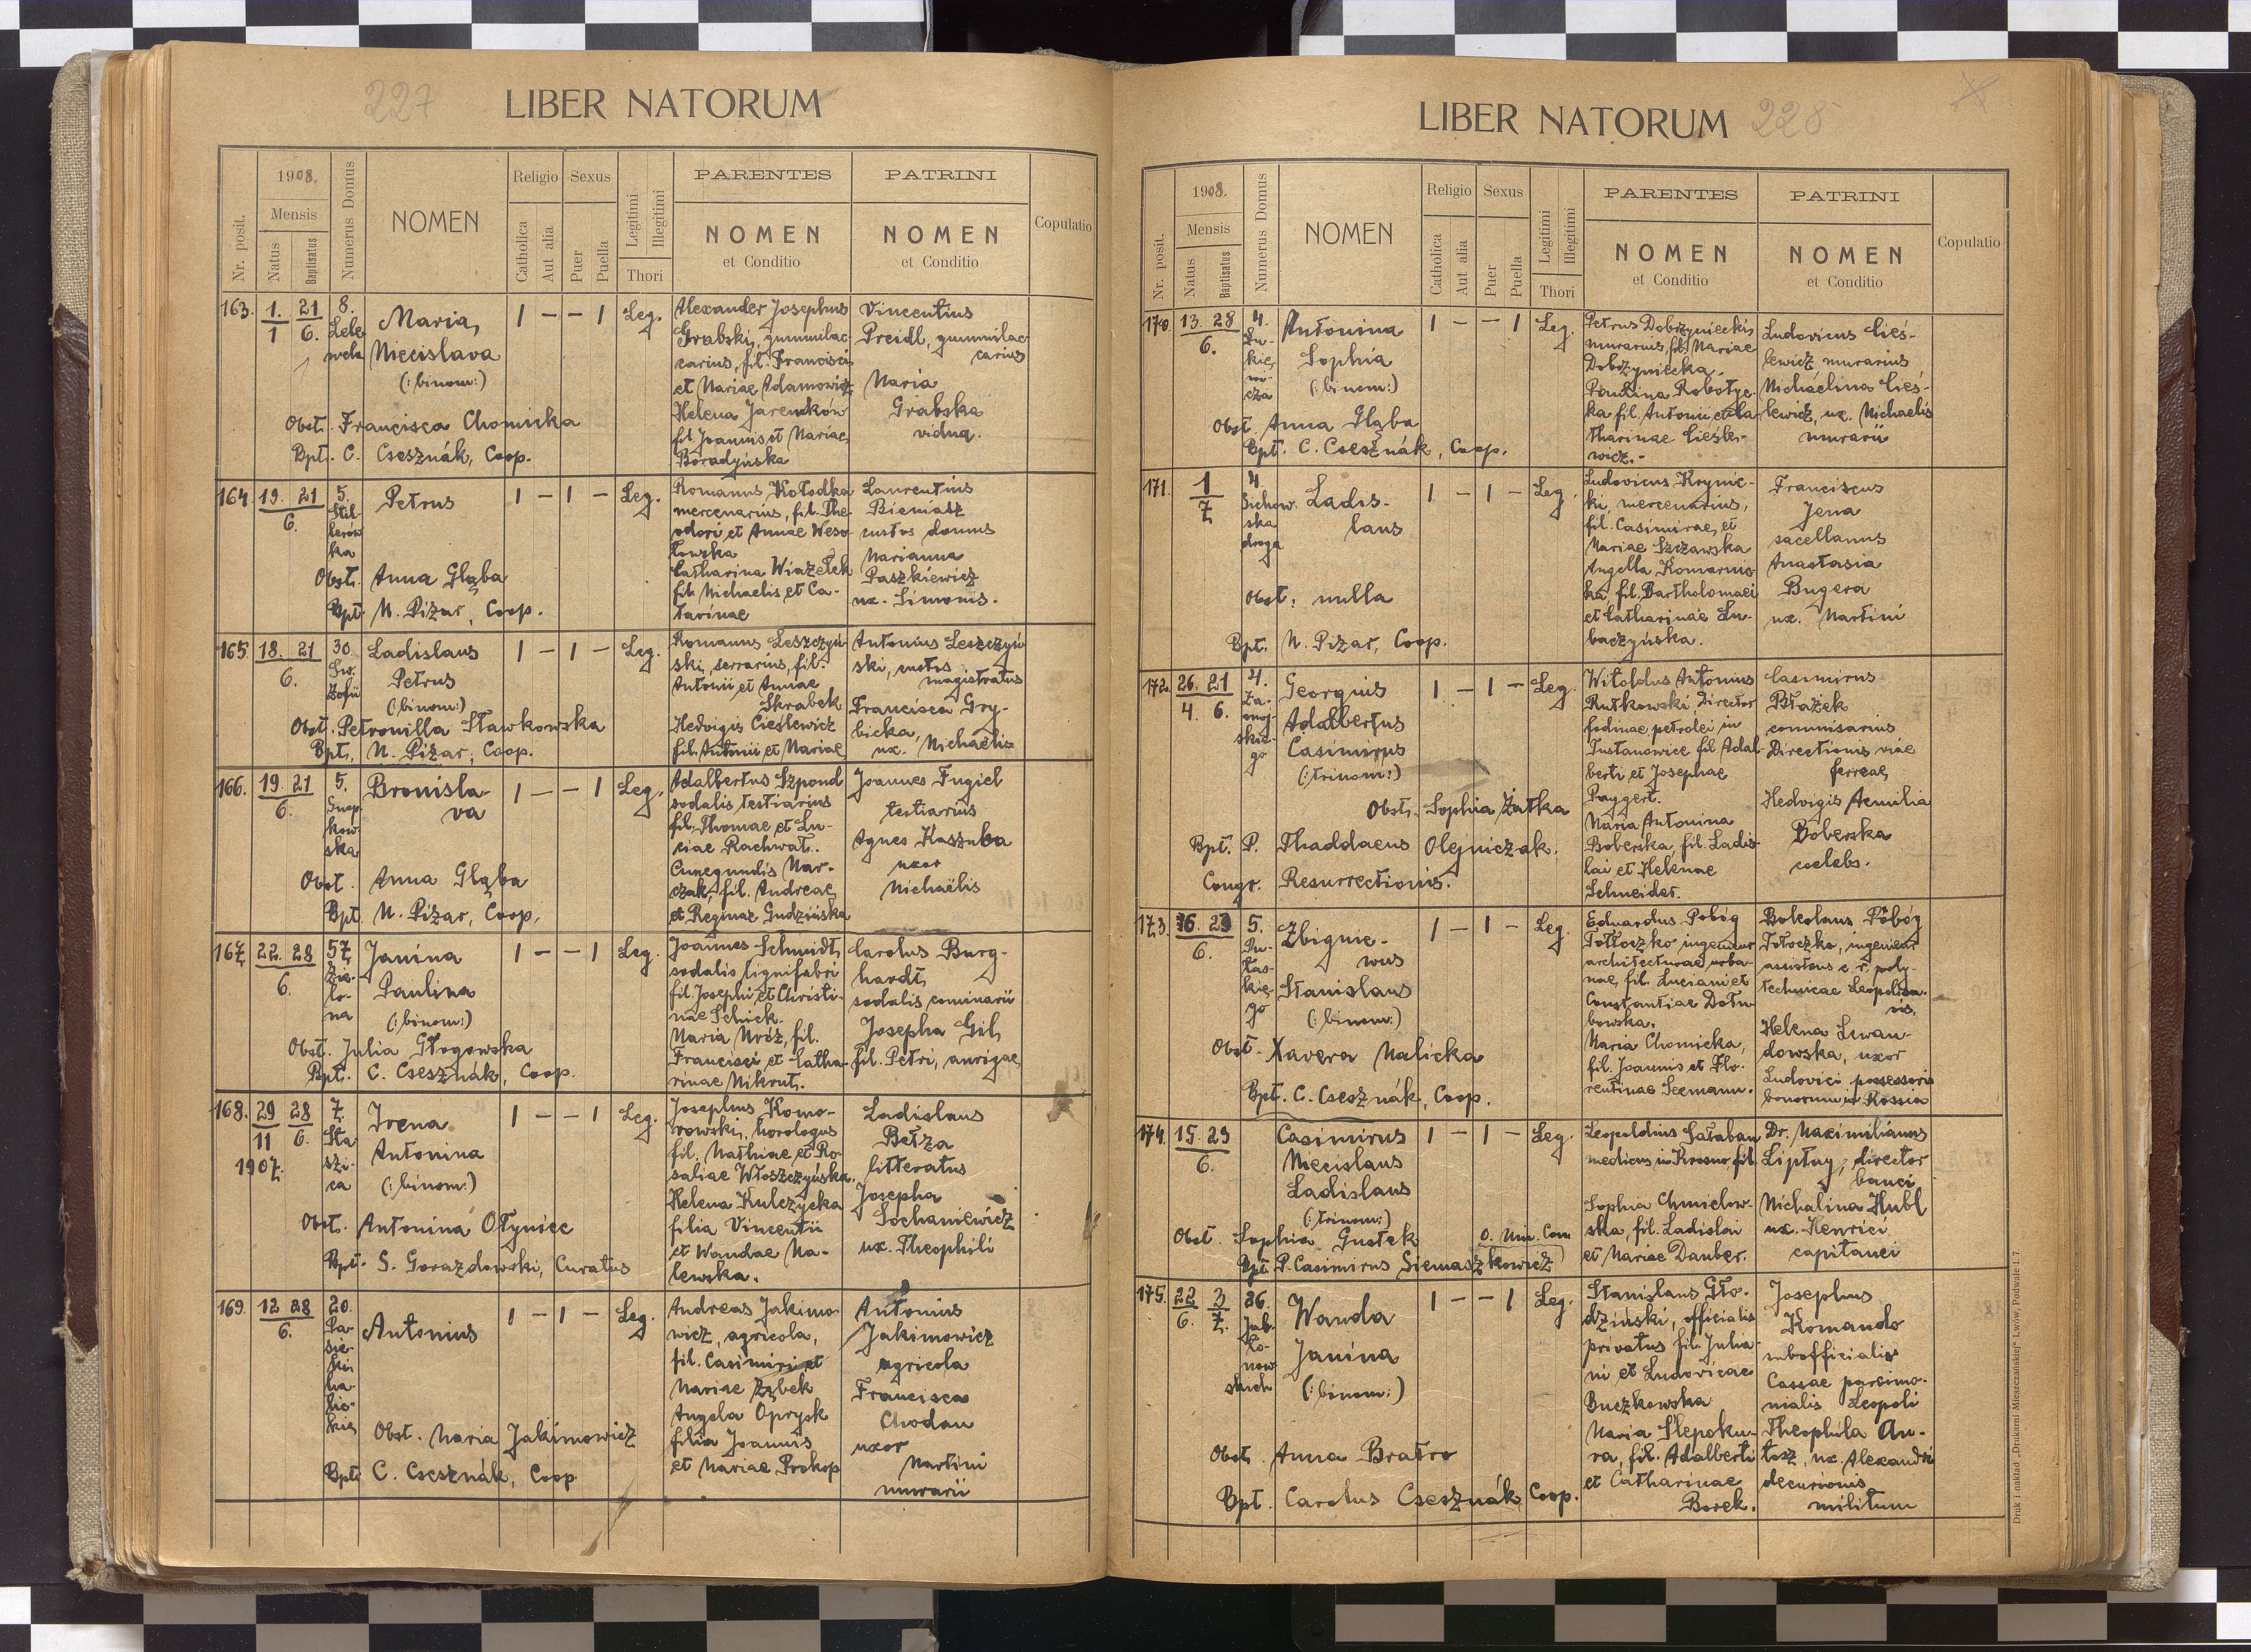 227
LIBER NATORUM
1908.
Mensis
Nr. posit.
Natus
Baptisatus
Numerus Domus
NOMEN
Religio
Catholica
Aut alia
Sexus
Puer
Puella
Legitimi
Illegitimi
Thori
PARENTES
NOMEN
et Conditio
PATRINI
NOMEN
et Conditio
Copulatio
163. 1. 21 8. Maria, 1 — — 1 Leg.
1 6.
Miecislava
(: binom :)
Obst. Francisca Chomicka
Bpt. C. Csesznák, Coop.
Alexander Josephus
Grabski, gummilac-
carius, fil. Francisci
et Mariae Adamowicz
Helena Jaremków
fil. Joannis et Mariae
Boradyńska
Vincentius
Preidl, gummilac-
carius
Maria
Grabska
vidua.
164. 19. 21 5. Petrus 1 — 1 — Leg.
6.
Stil-
lerów
ka
Obst. Anna Głąba
Bpt. M. Piżar, Coop.
Romanus Kołodka
mercenarius, fil. The-
odori et Annae Weso-
łowska
Catharina Wiązełek
fil. Michaelis et Ca-
tarinae
Laurentius
Biemasz
custos domus
Marianna
Paszkiewicz
ux. Simonis.
165. 18. 21 30. Ladislaus 1 — 1 — Leg.
6.
Św.
Zofii
Petrus
(: binom :)
Obst. Petronilla Sławkowska
Bpt. M. Piżar, Coop.
Romanus Leszczyń-
ski, serrarius, fil.
Antonii et Annae
Skrabek
Hedvigis Cieślewicz
fil. Antonii et Mariae
Antonius Leszczyń-
ski, custos
magistratus
Francisca Gry-
bicka,
ux. Michaelis
166. 19. 21 5. Bronisla- 1 — — 1 Leg.
6.
va
Snop-
kow-
ska
Obst. Anna Głąba
Bpt. M. Piżar, Coop.
Adalbertus Szpond
sodalis testiarius
fil. Thomae et Lu-
ciae Rachwał.
Cunegundis Mar-
czak, fil. Andreae
et Reginae Gudzińska
Joannes Fugiel
testiarius
Agnes Kassuba
uxor
Michaëlis
167. 22. 28 57. Janina 1 — — 1 Leg.
6.
Zie-
lo-
na
Paulina
(: binom :)
Obst. Julia Głogowska
Bpt. C. Csesznák, Coop.
Joannes Schmidt,
sodalis lignifabri
fil. Josephi et Christi-
nae Schick.
Maria Mróz, fil.
Francisci et Catha-
rinae Mikrut.
Carolus Burg-
hardt,
sodalis caminarii
Josepha Gil,
fil. Petri, aurigae
168. 29 28 7. Irena 1 — — 1 Leg.
11 6.
1907.
Sta
szi-
ca
Antonina
(: binom :)
Obst. Antonina Ołyniec
Bpt. S. Gorazdowski, Curatus
Josephus Komo-
rowski, horologus
fil. Mathiae et Ro-
saliae Włoszczyńska.
Helena Kulczycka
filia Vincentii
et Wandae Ma-
lewska.
Ladislaus
Bełza
litteratus
Josepha
Sochaniewicz
ux. Theophili
169. 12 28 20. Antonius 1 — 1 — Leg.
6.
Pa-
sie-
ki
ha-
lic-
kie
Obst. Maria Jakimowicz
Bpt. C. Csesznák, Coop
Andreas Jakimo-
wicz, agricola,
fil. Casimiri et
Mariae Ząbek
Angela Oprysk
filia Joannis
et Mariae Prokop
Antonius
Jakimowicz
agricola
Francisca
Chodan
uxor
Martini
murarii
LIBER NATORUM
228
1908.
Mensis
Nr. posit.
Natus
Baptisatus
Numerus Domus
NOMEN
Religio
Catholica
Aut alia
Sexus
Puer
Puella
Legitimi
Illegitimi
Thori
PARENTES
NOMEN
et Conditio
PATRINI
NOMEN
et Conditio
Copulatio
170 13. 28 4. Antonina 1 — — 1 Leg.
6.
Sophia
(: binom :)
Obst. Anna Głąba
Bpt. C. Csesznák, Coop.
Petrus Dobrzyniecki
murarius, fil. Mariae
Dobrzyniecka.
Paulina Robotyc-
ka fil. Antonii et Ca-
tharinae Cieśle-
wicz.
Ludovicus Cieś-
lewicz murarius
Michaëlina Cieś-
lewicz, ux. Michaëlis
murarii
171. 1 4. Ladis- 1 — 1 — Leg.
7.
laus
Sichow
ska
droga
Obst. nulla
Bpt. M. Piżar, Coop.
Ludovicus Krynic-
ki, mercenarius,
fil. Casimirae, et
Mariae Szczawska
Angella Komarnic-
ka, fil. Bartholomaei
et Catharinae Lu-
baczyńska.
Franciscus
Jena
sacellanus
Anastasia
Bugera
ux. Martini
172. 26. 21 4. Georgius 1 — 1 — Leg.
4. 6.
Za-
moj-
skie-
go
Adalbertus
Casimirus
(: trinom :)
Obst. Sophia Żatka
Bpt. P. Thaddaeus Olejniczak.
Congr. Resurrectionis.
Witoldus Antonius
Rutkowski Director
fodinae petrolei in
Tustanowice fil. Adal-
berti et Josephae
Paygert.
Maria Antonina
Boberska, fil. Ladis-
lai et Helenae
Schneider.
Casimirus
Błażek
commisarius
Directionis viae
ferreae,
Hedvigis Aemilia
Boberska
caelebs.
173. 16. 29 5. Zbignie- 1 — 1 — Leg.
6.
wus
Pu-
łas-
kie-
go
Stanislaus
(: binom :)
Obst. Xavera Malicka
Bpt. C. Csesznák, Coop.
Eduardus Pobóg
Tołłoczko ingenieur
architecturae urba-
nae, fil. Luciani et
Constantiae Dołu-
bowska.
Maria Chomicka,
fil. Joannis et Flo-
rentinae Seemann.
Boleslaus Pobóg
Tołłoczko, ingenieur
assistens c. r. poly-
technicae Leopolien-
sis,
Helena Lewan-
dowska, uxor
Ludovici possessoris
bonorum in Rossia
174. 15. 29 Casimirus 1 — 1 — Leg.
6.
Miecislaus
Ladislaus
(: trinom :)
Obst. Sophia Gustek
Bpt. P. Casimirus Siemaszkowicz O. Min. Con
Leopoldius Sałaban
medicus in Krosno, fil.
Sophia Chmielow-
ska, fil. Ladislai
et Mariae Dauber.
Dr. Maximilianus
Liptay, director
banci
Michalina Hubl
ux. Henrici
capitanei
175. 22 3 26. Wanda 1 — — 1 Leg.
6. 7.
Jab-
ło-
now-
skich
Janina
(: binom :)
Obst. Anna Bratro
Bpt. Carolus Csesznák, Coop.
Stanislaus Gło-
dziński, officialis
privatus fil. Julia-
ni et Ludovicae
Buczkowska
Maria Slepoku-
ra, fil. Adalberti
et Catharinae
Borek.
Josephus
Komando
subofficialis
Cassae parsimo-
nialis Leopoli
Theophila An-
tosz, ux. Alexandri
decurionis
militum
Druk i nakład „Drukarni Mieszczańskiej” Lwów, Podwale l. 7.